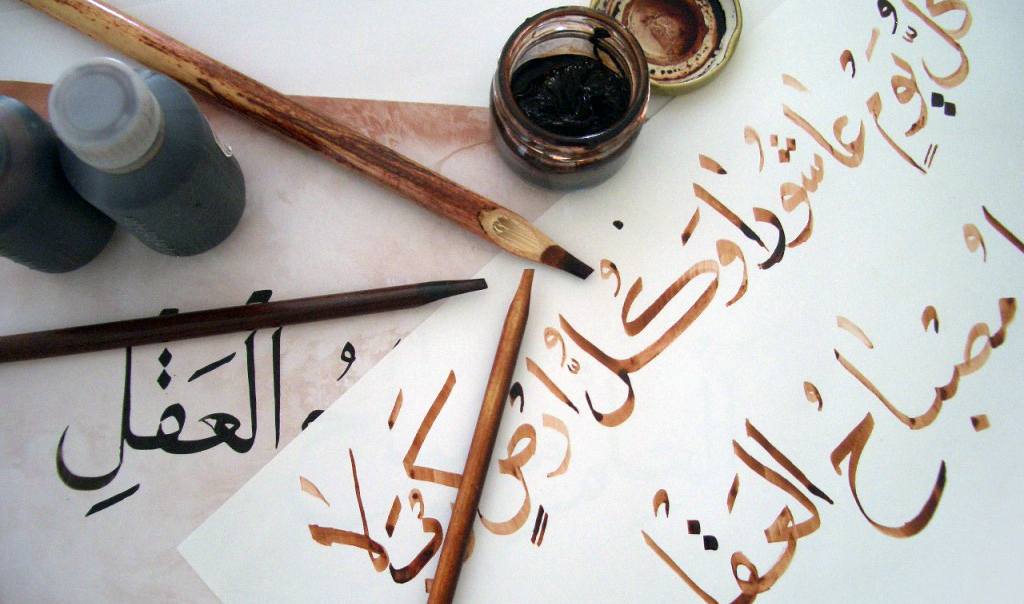 كُلُّ يَوْمٍ عَاشُورَا وَكُلُّ أَرْضٍ كَرْبَلَا
مِصْبَاحُ العَقْلِ
العَقْلِ